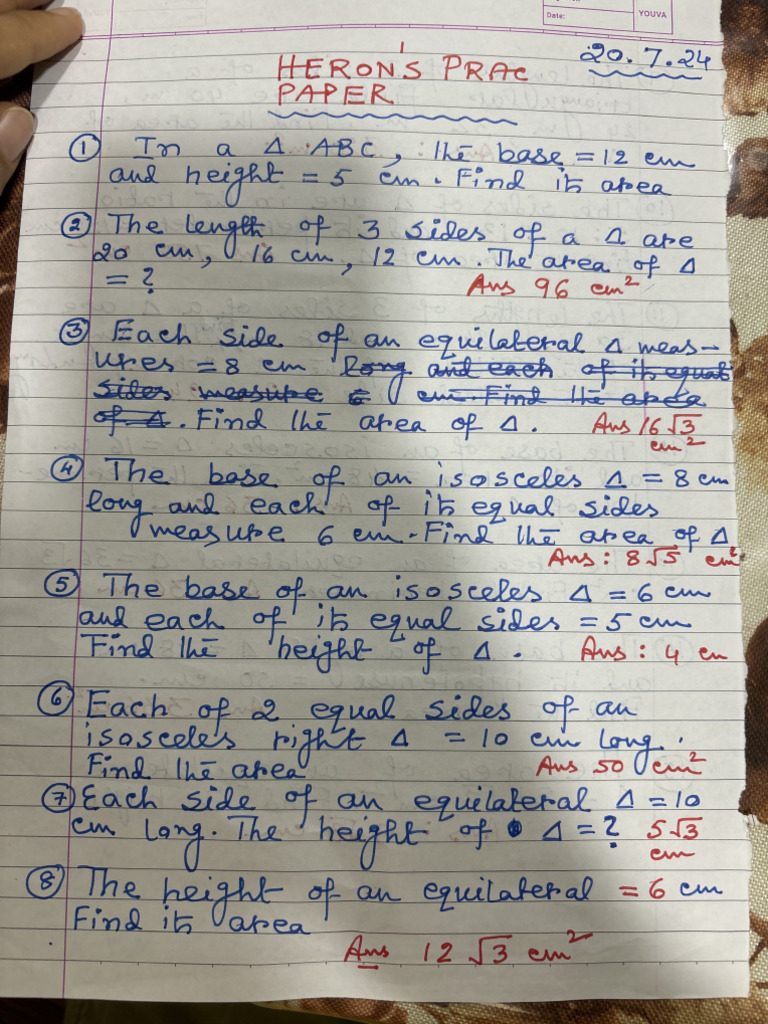 Date:
YOUVA
20.7.24
HERON'S PRAC
PAPER
① In a Δ ABC, the base = 12 cm
and height = 5 cm. Find its area
② The length of 3 sides of a Δ are
20 cm, 16 cm, 12 cm. The area of Δ
= ?
Ans 96 cm²
③ Each side of an equilateral Δ meas-
ures = 8 cm long and each of its equal
sides measure 6 cm. Find the area
of Δ. Find the area of Δ. Ans 16√3
cm²
④ The base of an isosceles Δ = 8 cm
long and each of its equal sides
measure 6 cm. Find the area of Δ
Ans: 8√5 cm²
⑤ The base of an isosceles Δ = 6 cm
and each of its equal sides = 5 cm
Find the height of Δ. Ans: 4 cm
⑥ Each of 2 equal sides of an
isosceles right Δ = 10 cm long.
Find the area Ans 50 cm²
⑦ Each side of an equilateral Δ = 10
cm long. The height of Δ = ? 5√3
cm
⑧ The height of an equilateral = 6 cm
Find its area
Ans 12√3 cm²